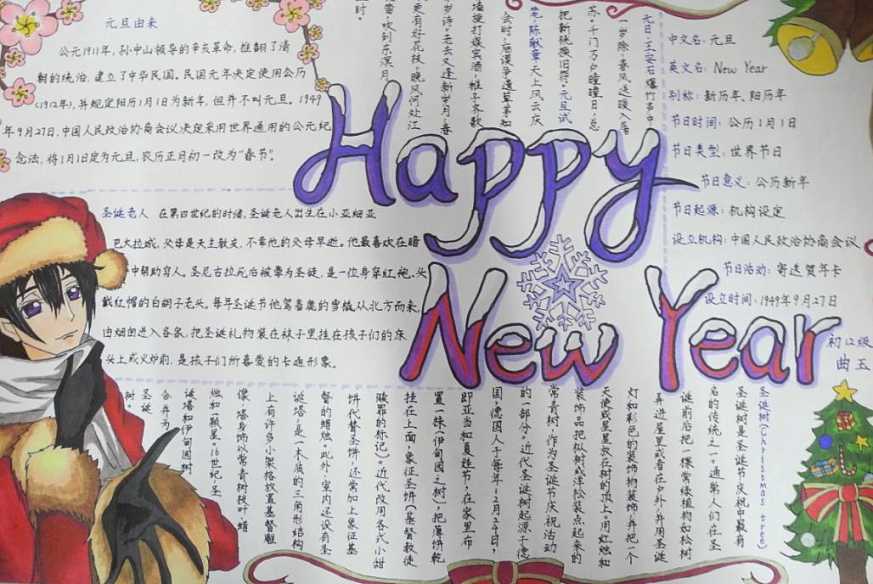 元旦由来
公元1911年，孙中山领导的辛亥革命，推翻了清
朝的统治，建立了中华民国。民国元年决定使用公历
(1912年)，并规定阳历1月1日为新年，但并不叫元旦。1949
年9月27日，中国人民政治协商会议决定采用世界通用的公元纪
念法，将1月1日定为元旦，农历正月初一改为"春节"。
元日，王安石爆竹声中
一岁除，春风送暖入屠
苏。千门万户瞳瞳日，总
把新桃换旧符。元旦试
笔，陈献章天上风云庆
会时，庙谟争遗草茅知
墙搜打娱宾酒，稚子齐歌
岁诗。老去又逢新岁月，春
更有好花枝。晚风何处江
吹到东溟月
时。
中文名：元旦
英文名：New Year
别称：新历年、阳历年
节日时间：公历1月1日
节日类型：世界节日
节日意义：公历新年
节日起源：机构设定
设立机构：中国人民政治协商会议
节日活动：寄送贺年卡
设立时间：1949年9月27日
Happy
New Year
初12级
曲玉
圣诞老人 在第四世纪的时候，圣诞老人出生在小亚细亚
巴大拉城，父母是天主教友，不幸他的父母早逝。他最喜欢在暗
中帮助穷人。圣尼古拉死后被尊为圣徒，是一位身穿红袍、头
戴红帽的白胡子老头。每年圣诞节他驾着鹿的雪橇从北方而来，
由烟囱进入各家，把圣诞礼物装在袜子里挂在孩子们的床
头上或火炉前，是孩子们所喜爱的卡通形象。
圣诞树(Christmas tree)
圣诞树是圣诞节庆祝中最有
名的传统之一。通常人们在圣
诞前后把一棵常绿植物如松树
弄进屋里或者在户外，并用圣诞
灯和彩色的装饰物装饰，并把一个
天使或星星放在树的顶上。用红烛和
装饰品把枞树或洋松装点起来的
常青树，作为圣诞节庆祝活动
的一部分。近代圣诞树起源于德
国，德国人于每年12月24日，
即亚当和夏娃节，在家里布
置一株(伊甸园之树)，把薄饼乾
挂在上面，象征圣饼(基督教徒
赎罪的标记)。近代改用各式小甜
饼代替圣饼，还常加上象征基
督的蜡烛。此外，室内还设有圣
诞塔，是一木质的三角形结构
上有许多小架格放置基督雕
像，塔身饰以常青树枝叶、蜡
烛和一颗星。16世纪，圣
诞塔和伊甸园树
合并为
圣诞
树。